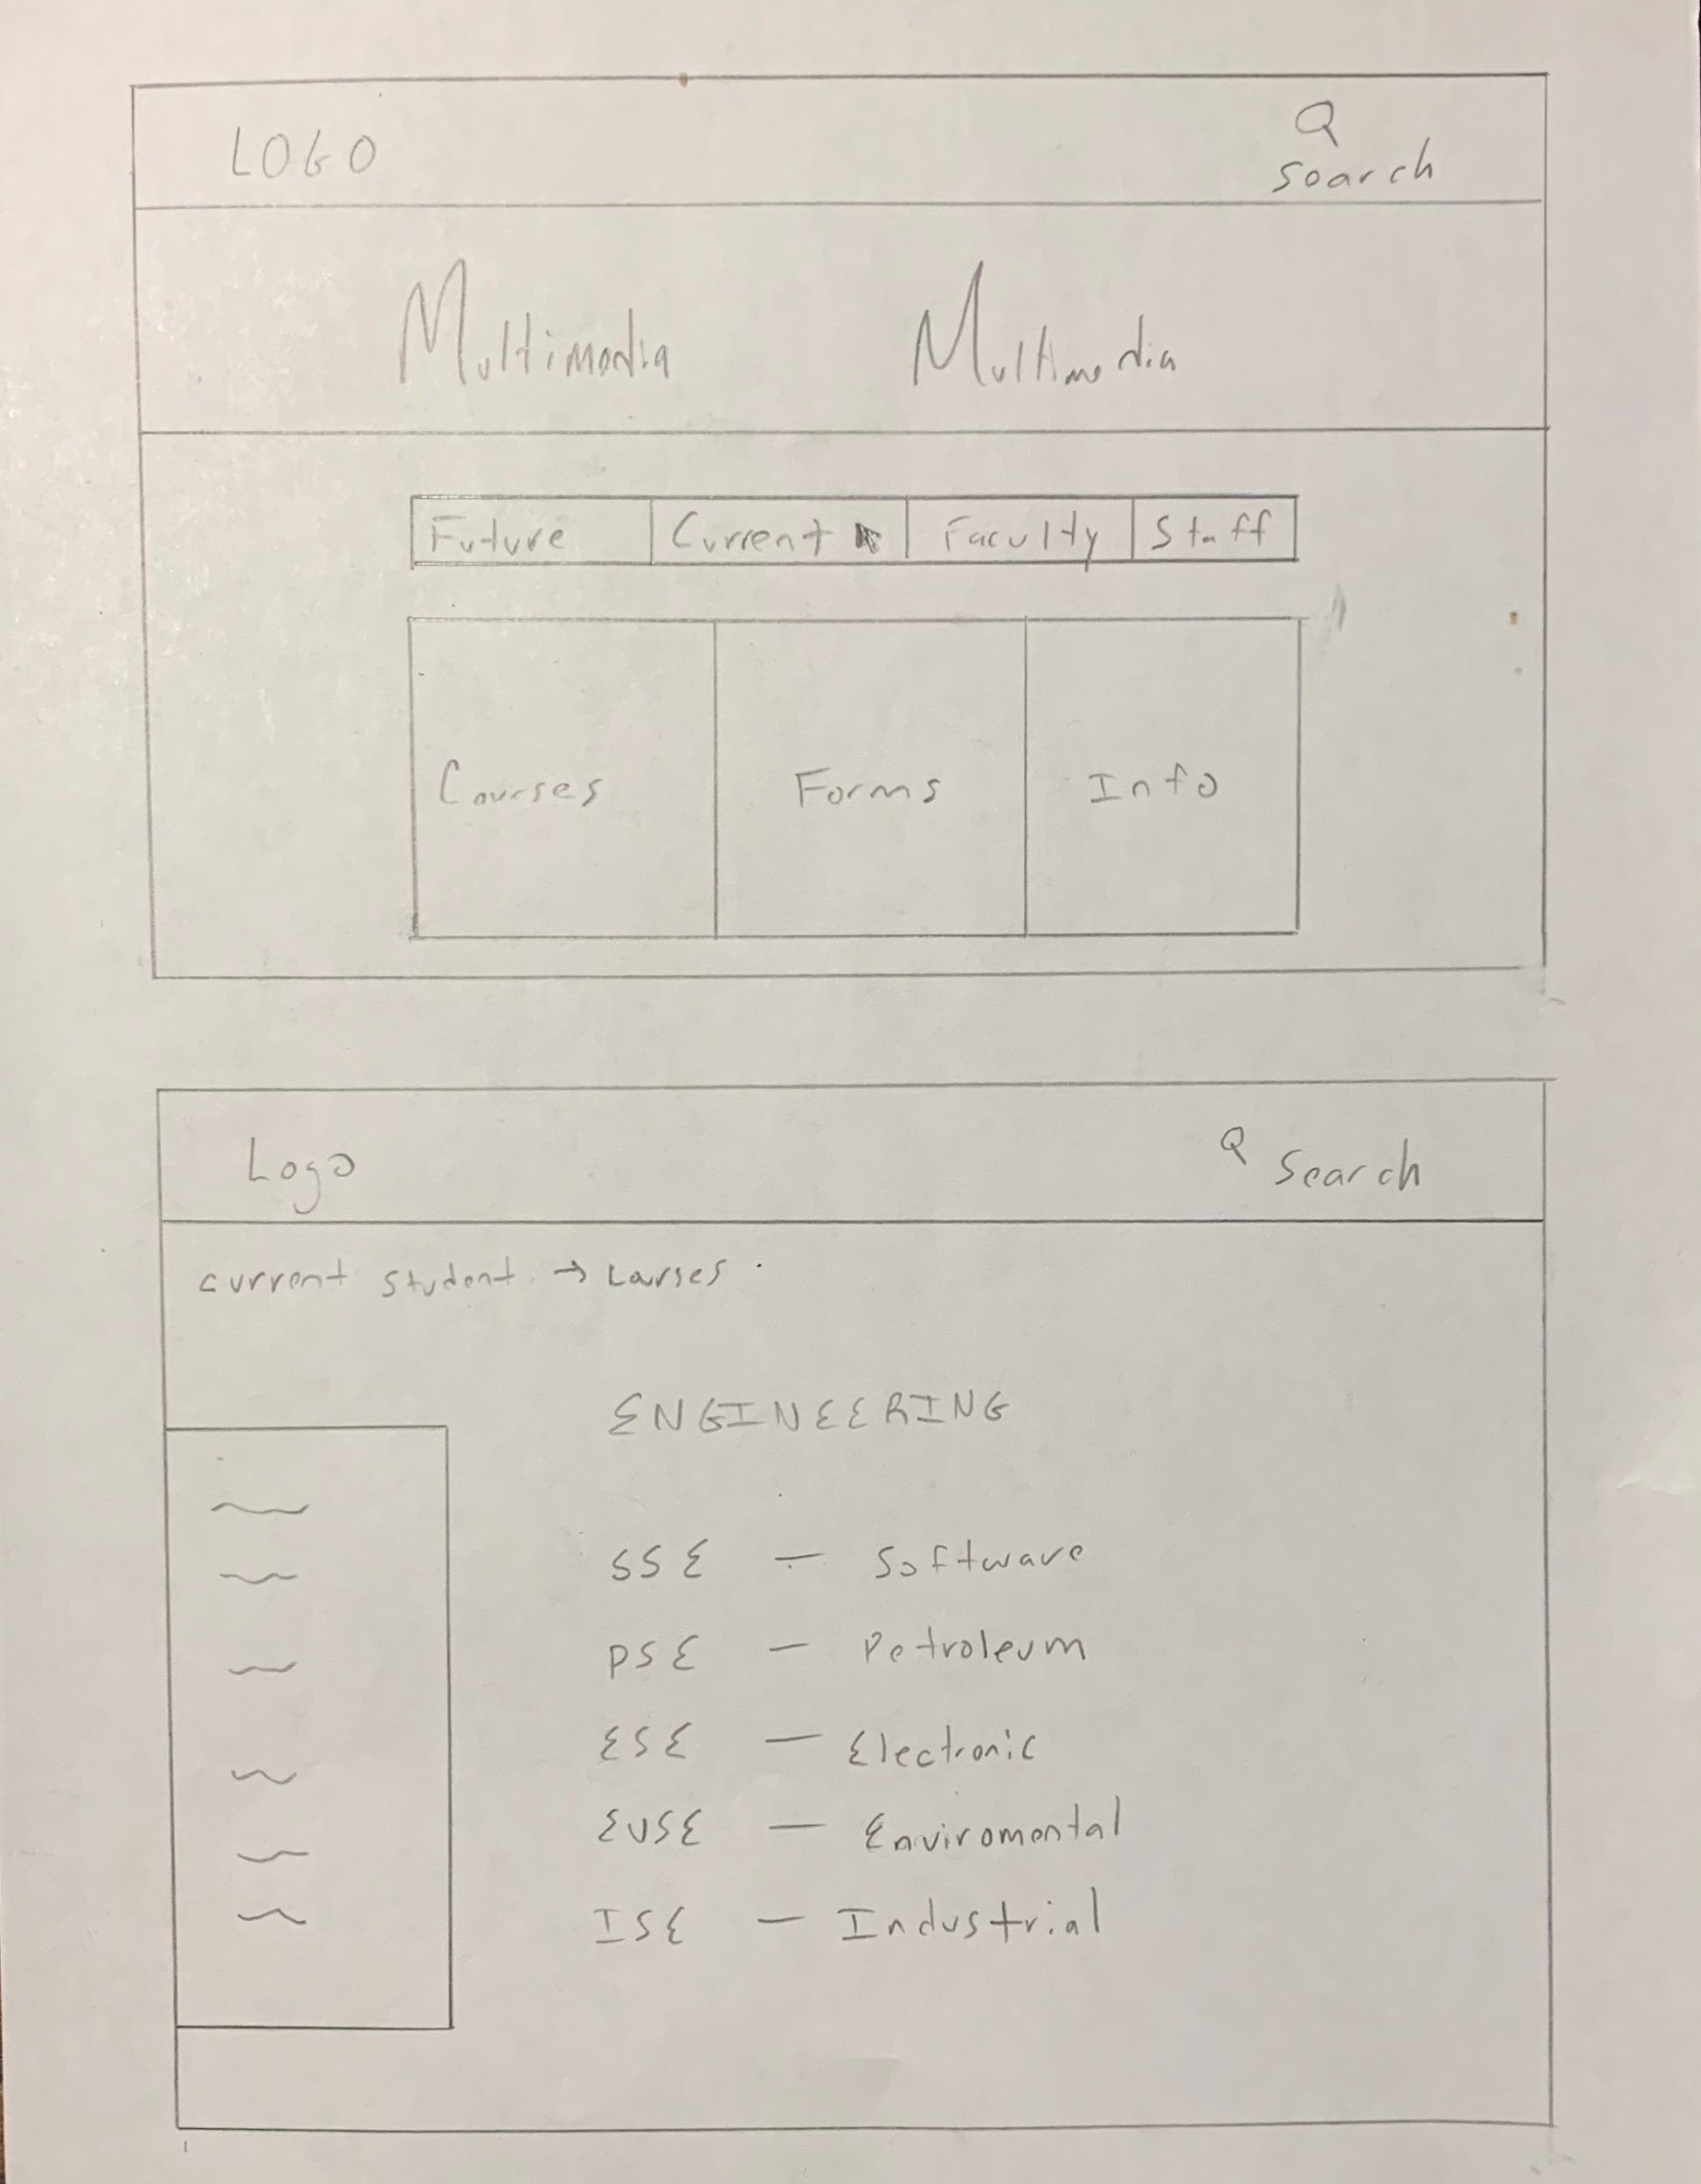 LOGO
Search
Multimedia Multimedia
Future Current Faculty Staff
Courses Forms Info
Logo Search
current student → courses
ENGINEERING
SSE — Software
PSE — Petroleum
ESE — Electronic
EVSE — Enviromental
ISE — Industrial